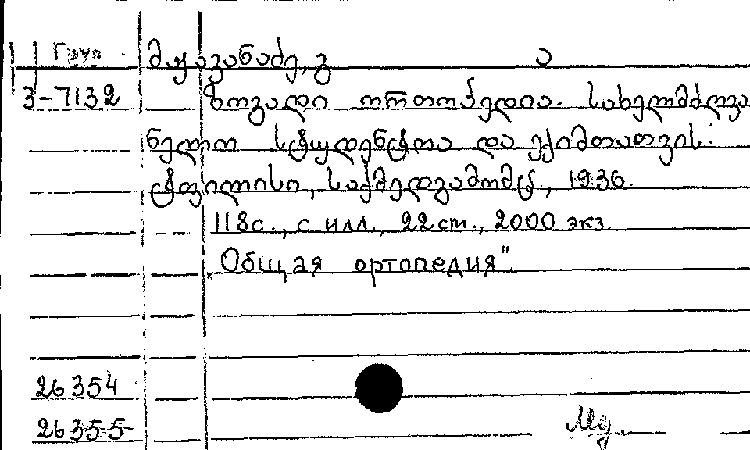 Груз
მაყავანაძე, გ ა
3-7132 ზოგადი ორთოპედია. სახელმძღვა
ნელო სტუდენტთა და ექიმთათვის.
ტფილისი, საქმედგამომც, 1936.
118с., с илл., 22 cm., 2000 экз
„Общая ортопедия".
26354
26355